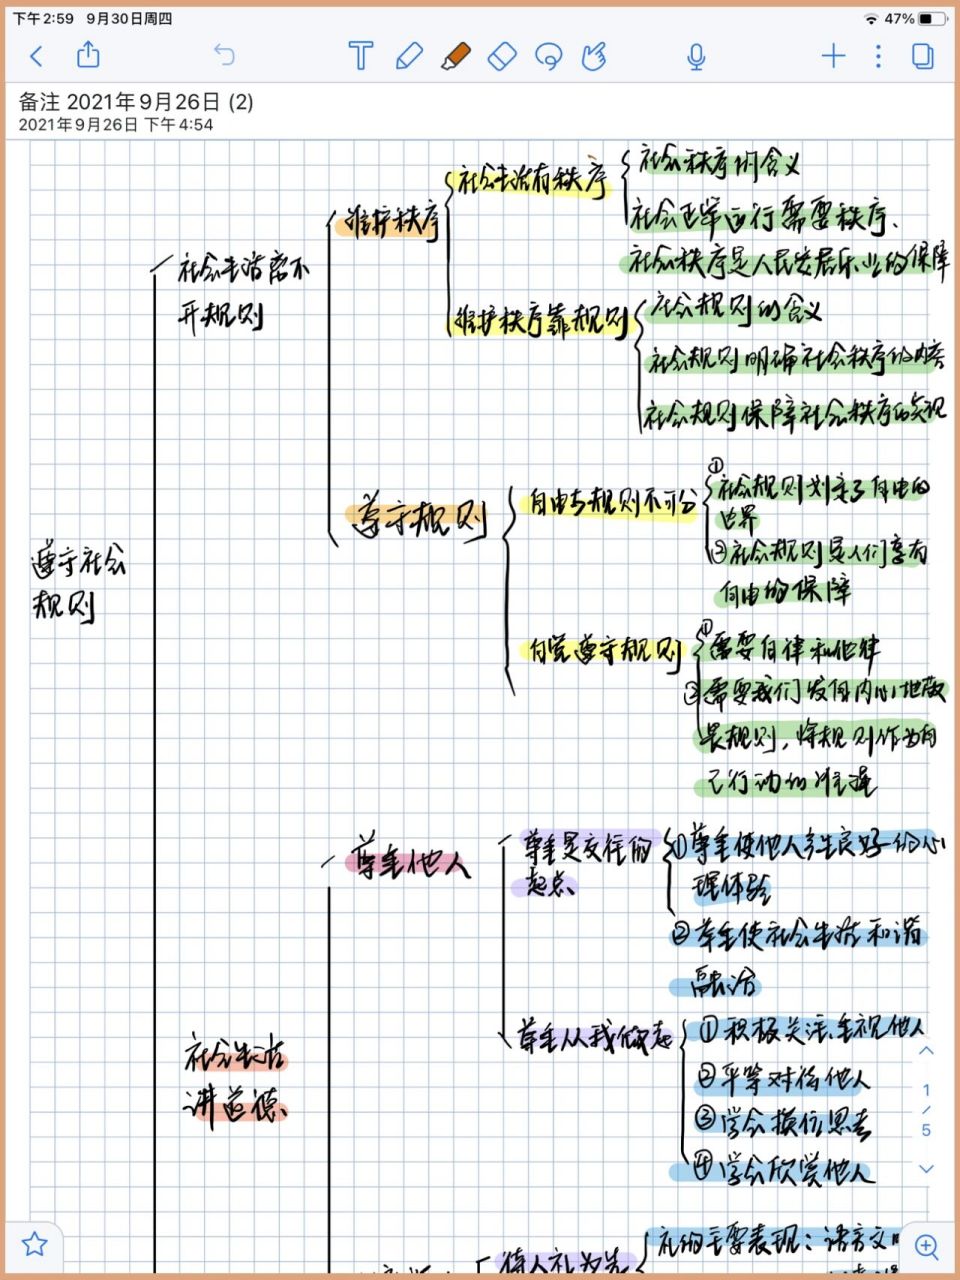 下午2:59 9月30日周四
47%
备注 2021年9月26日 (2)
2021年9月26日 下午4:54
遵守社会
规则
社会生活离不
开规则
维护秩序
社会生活有秩序
社会秩序的含义
社会正常运行需要秩序、
社会秩序是人民安居乐业的保障
维护秩序靠规则
社会规则的含义
社会规则明确社会秩序的内容
社会规则保障社会秩序的实现
遵守规则
自由与规则不可分
①社会规则划定了自由的
世界
②社会规则是人们享有
自由的保障
自觉遵守规则
①需要自律和他律
②需要我们发自内心地敬
畏规则，将规则作为自
己行动的准绳
社会生活
讲道德
尊重他人
尊重是交往的
起点
①尊重使他人产生良好的心
理体验
②尊重使社会生活和谐
融洽
尊重从我做起
①积极关注、重视他人
②平等对待他人
③学会换位思考
④学会欣赏他人
待人礼为先
礼的主要表现：语言文明
1/5